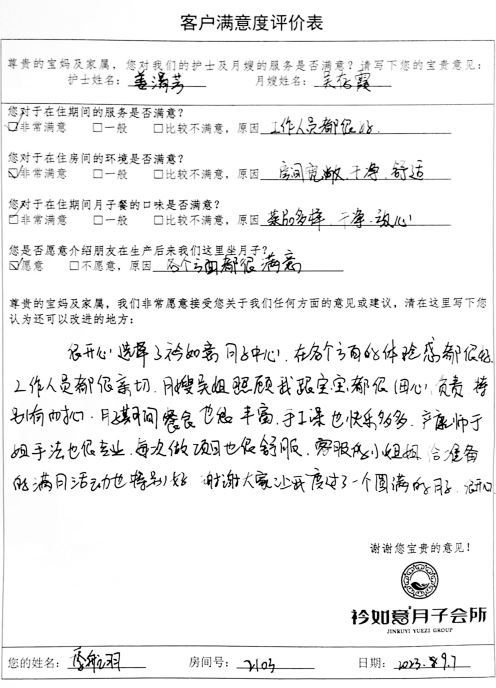 客户满意度评价表
尊贵的宝妈及家属，您对我们的护士及月嫂的服务是否满意？请写下您的宝贵意见：
护士姓名： 月嫂姓名：
您对于在住期间的服务是否满意？
☑非常满意 □一般 □比较不满意，原因 工作人员都很好.
您对于在住房间的环境是否满意？
☑非常满意 □一般 □比较不满意，原因 房间宽敞、干净、舒适
您对于在住期间月子餐的口味是否满意？
☑非常满意 □一般 □比较不满意，原因 菜品多样、干净、放心
您是否愿意介绍朋友在生产后来我们这里坐月子？
☑愿意 □不愿意，原因 各个方面都很满意
尊贵的宝妈及家属，我们非常愿意接受您关于我们任何方面的意见或建议，请在这里写下您
认为还可以改进的地方：
很开心选择了衿如意月子中心，在各个方面的体验感都很好
工作人员都很亲切，月嫂吴姐照顾我跟宝宝都很用心，负责 特
别有面，月期间餐食也很丰富，手工课也快乐多多，产康师于
姐手法也很专业，每次做项目也很舒服，客服的小姐姐给准备
的满月活动也特别好 谢谢大家让我度过了一个圆满的月子，很开心
谢谢您宝贵的意见！
衿如意月子会所
JINRUYI YUEZI GROUP
您的姓名： 房间号： 2103 日期： 2023.8.9.7